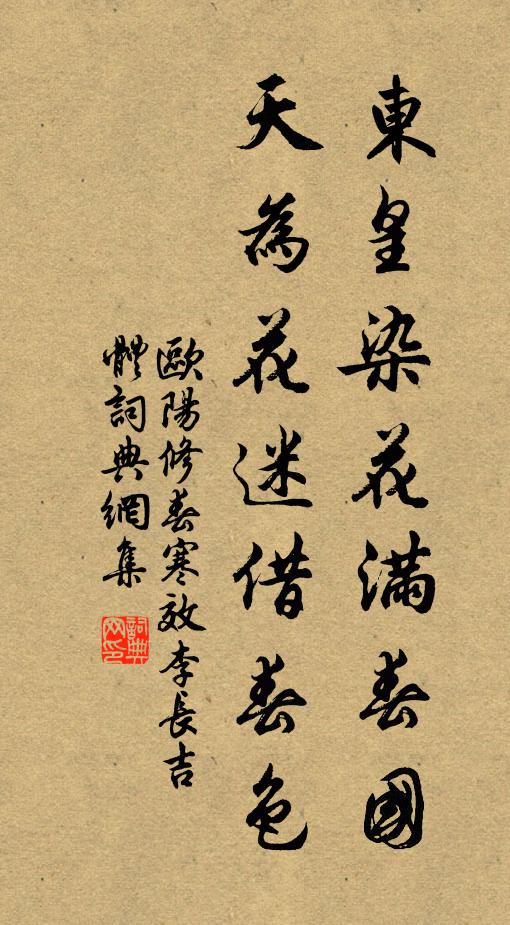 東皇染花滿春國
天為花迷借春色
歐陽修春寒效李長吉
體詞典網集
詞典
网印